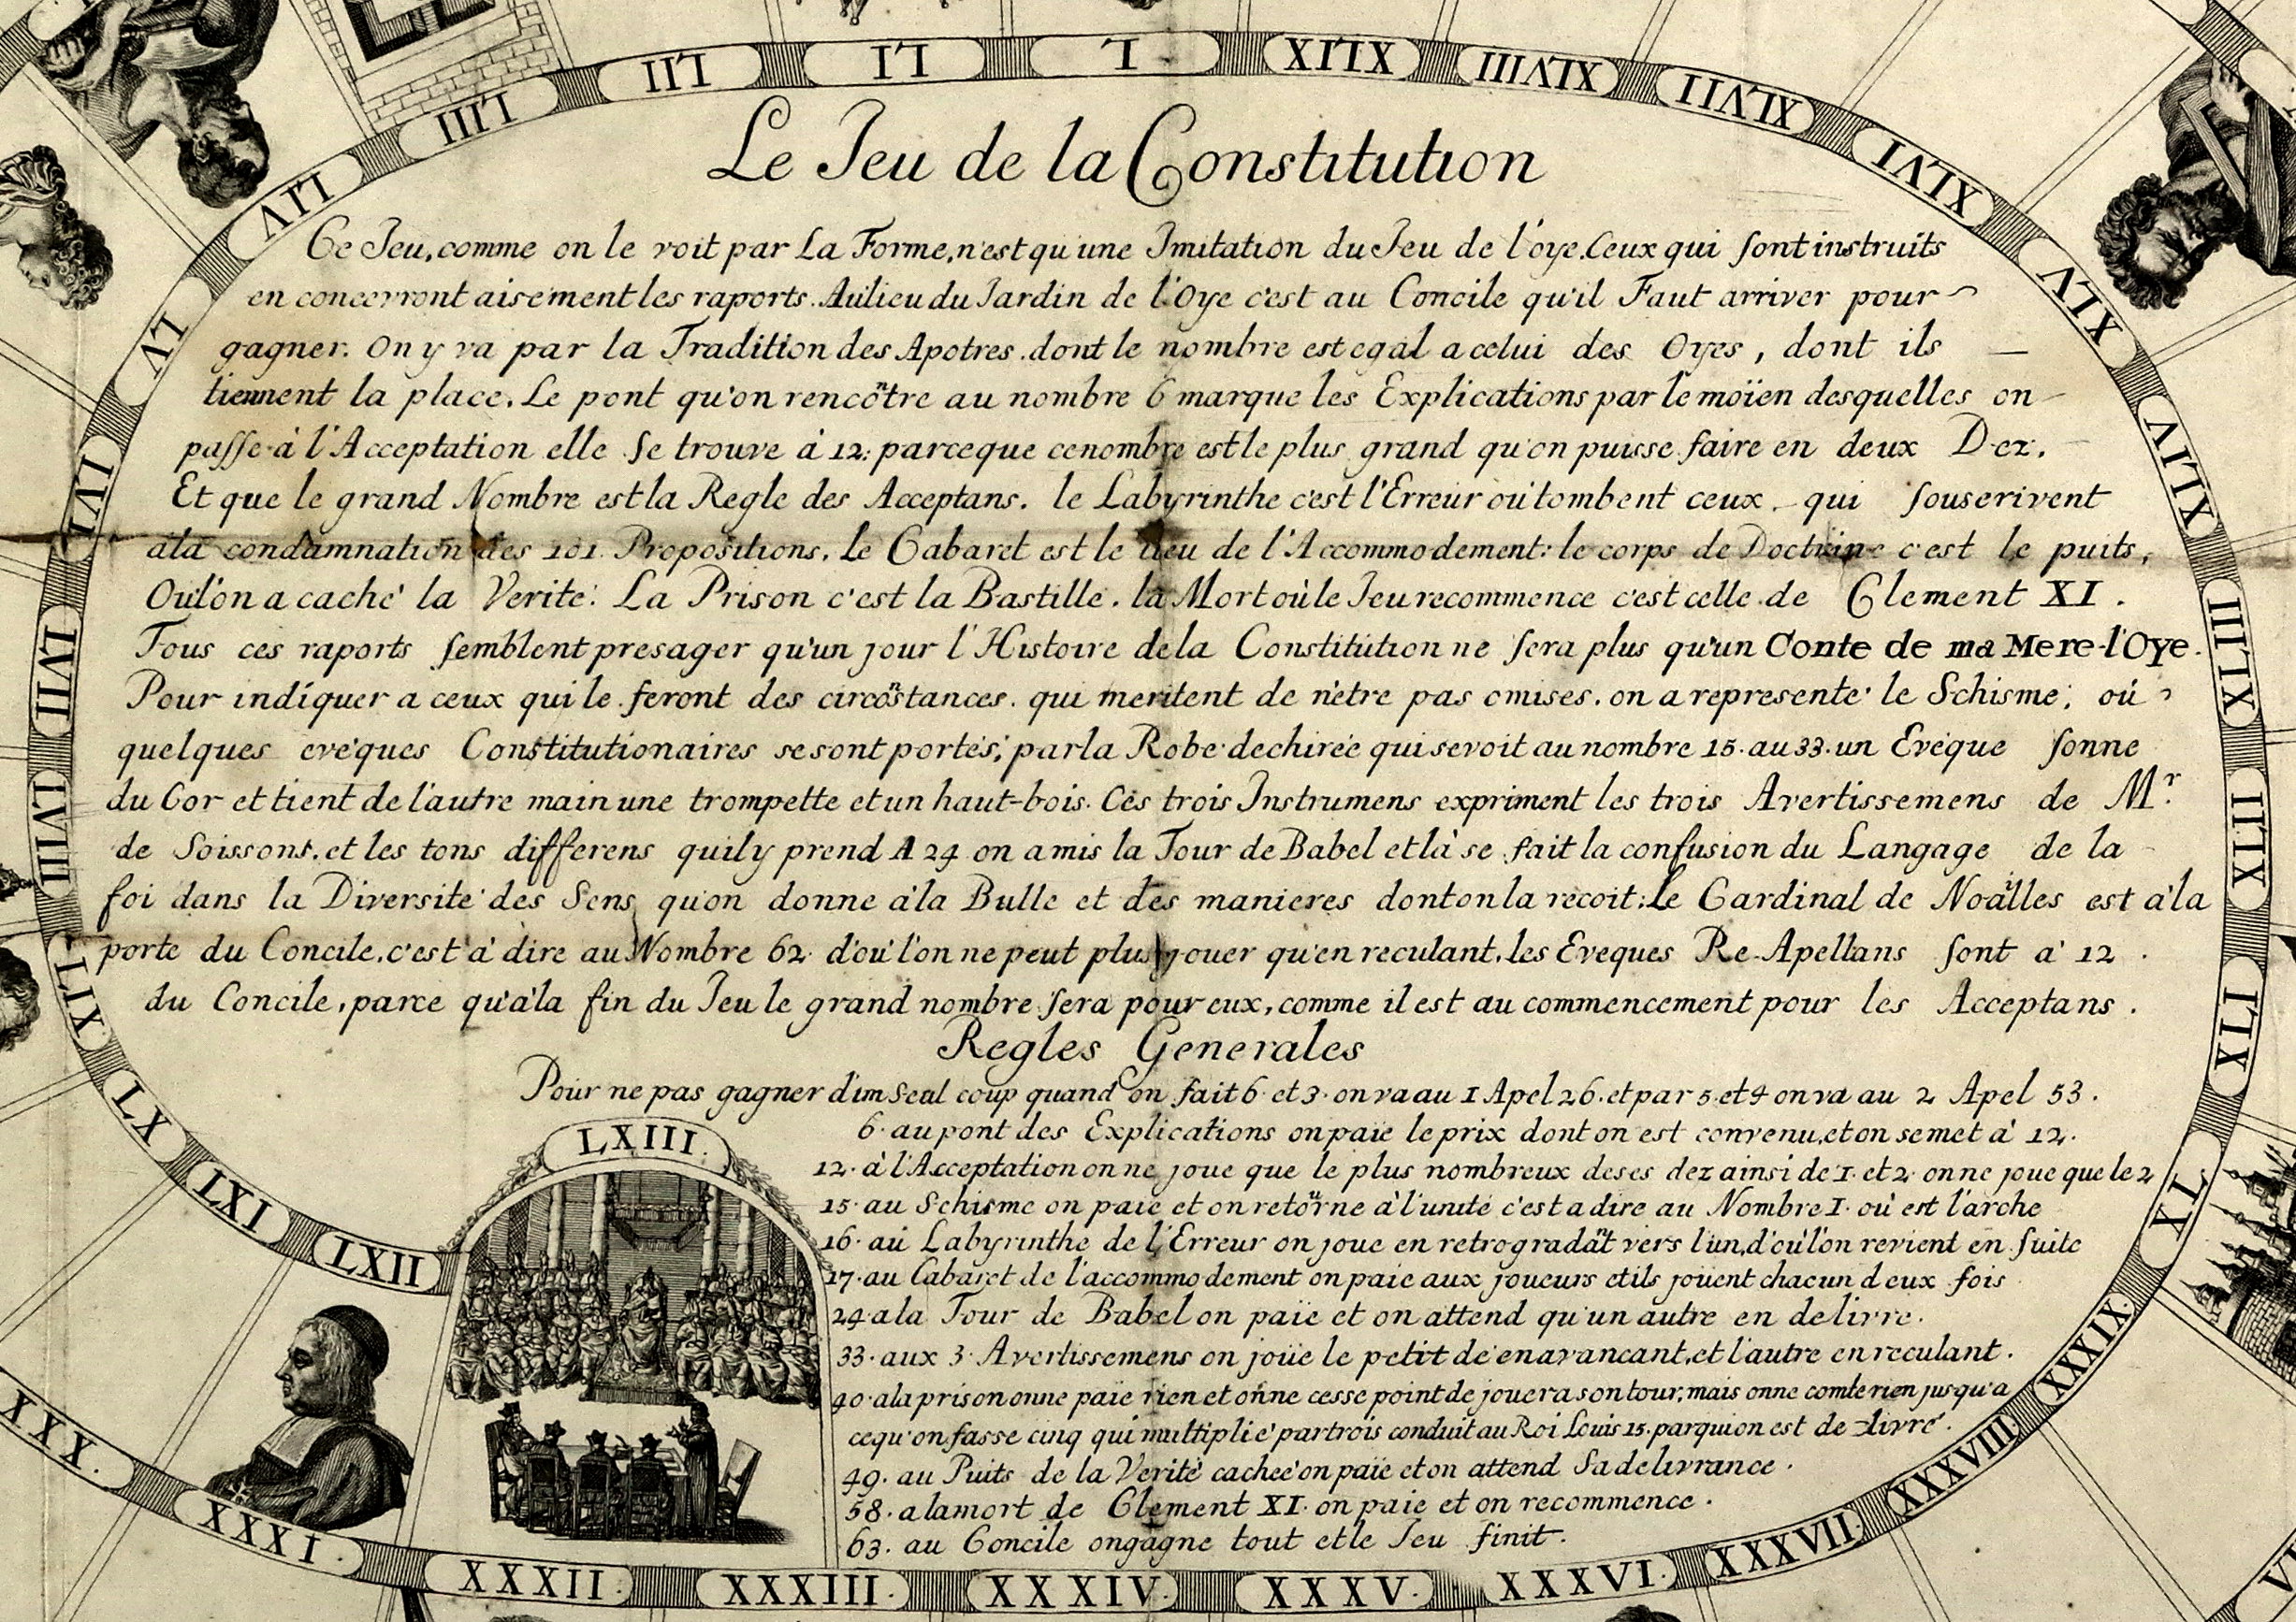 Le Jeu de la Constitution
Ce Jeu, comme on le voit par La Forme, n'est qu'une Imitation du Jeu de l'oye. Ceux qui sont instruits
en concevront aisement les raports. Au lieu du Jardin de l'Oye c'est au Concile qu'il Faut arriver pour
gagner. On y va par la Tradition des Apotres. dont le nombre est egal a celui des Oyes, dont ils
tiennent la place. Le pont qu'on rencõtre au nombre 6 marque les Explications par le moïen desquelles on
passe à l'Acceptation elle se trouve à 12: parceque ce nombre est le plus grand qu'on puisse faire en deux Dez.
Et que le grand Nombre est la Regle des Acceptans. le Labyrinthe c'est l'Erreur où tombent ceux qui souscrivent
à la condamnation des 101 Propositions. Le Cabaret est le lieu de l'Accommodement: le corps de Doctrine c'est le puits,
Où l'on a caché la Verité: La Prison c'est la Bastille. la Mort où le Jeu recommence c'est celle de Clement XI.
Tous ces raports semblent presager qu'un jour l'Histoire de la Constitution ne sera plus qu'un Conte de ma Mere-l'Oye.
Pour indiquer a ceux qui le feront des circõstances. qui meritent de n'être pas omises. on a representé le Schisme; où
quelques evéques Constitutionaires se sont portés; par la Robe dechirée qui se voit au nombre 15. au 33. un Evéque sonne
du Cor et tient de l'autre main une trompette et un haut-bois. Ces trois Instrumens expriment les trois Avertissemens de Mr.
de Soissons. et les tons differens qu'il y prend A 24 on a mis la Tour de Babel et là se fait la confusion du Langage de la
foi dans la Diversité des Sens qu'on donne à la Bulle et des manieres dont on la recoit: Le Cardinal de Noailles est à la
porte du Concile. c'est à dire au Nombre 62. d'où l'on ne peut plus jouer qu'en reculant. les Eveques Re-Apellans sont a 12
du Concile, parce qu'à la fin du Jeu le grand nombre sera pour eux, comme il est au commencement pour les Acceptans.
Regles Generales
Pour ne pas gagner d'un seul coup quand on fait 6 et 3. on va au 1 Apel 26. et par 5 et 4 on va au 2 Apel 53.
6. au pont des Explications on païe le prix dont on est convenu, et on se met à 12.
12. à l'Acceptation on ne joue que le plus nombreux de ses dez ainsi de 1. et 2. on ne joue que le 2
15. au Schisme on paie et on retõrne à l'unité c'est a dire au Nombre I. où est l'arche
16. au Labyrinthe de l'Erreur on joue en retrogradãt vers l'un, d'où l'on revient en suite
17. au Cabaret de l'accommodement on paie aux joueurs et ils jouent chacun deux fois
24. a la Tour de Babel on païe et on attend qu'un autre en delivre.
33. aux 3. Avertissemens on joüe le petit dé en avancant, et l'autre en reculant.
40. a la prison on ne païe rien et on ne cesse point de jouer a son tour, mais on ne comte rien jusqu'a
ce qu'on fasse cinq qui multiplié par trois conduit au Roi Louis 15. par qui on est delivré.
49. au Puits de la Verité cachée on païe et on attend sa delivrance.
58. a la mort de Clement XI. on paie et on recommence.
63. au Concile on gagne tout et le Jeu finit.
XXX.
XXXI.
XXXII.
XXXIII.
XXXIV.
XXXV.
XXXVI.
XXXVII.
XXXVIII.
XXXIX.
XL
XLI
XLII
XLIII
XLIV
XLV
XLVI
XLVII
XLVIII
XLIX
L
LI
LII
LIII
LIV
LV
LVI
LVII
LVIII
LIX
LX
LXI
LXII
LXIII.